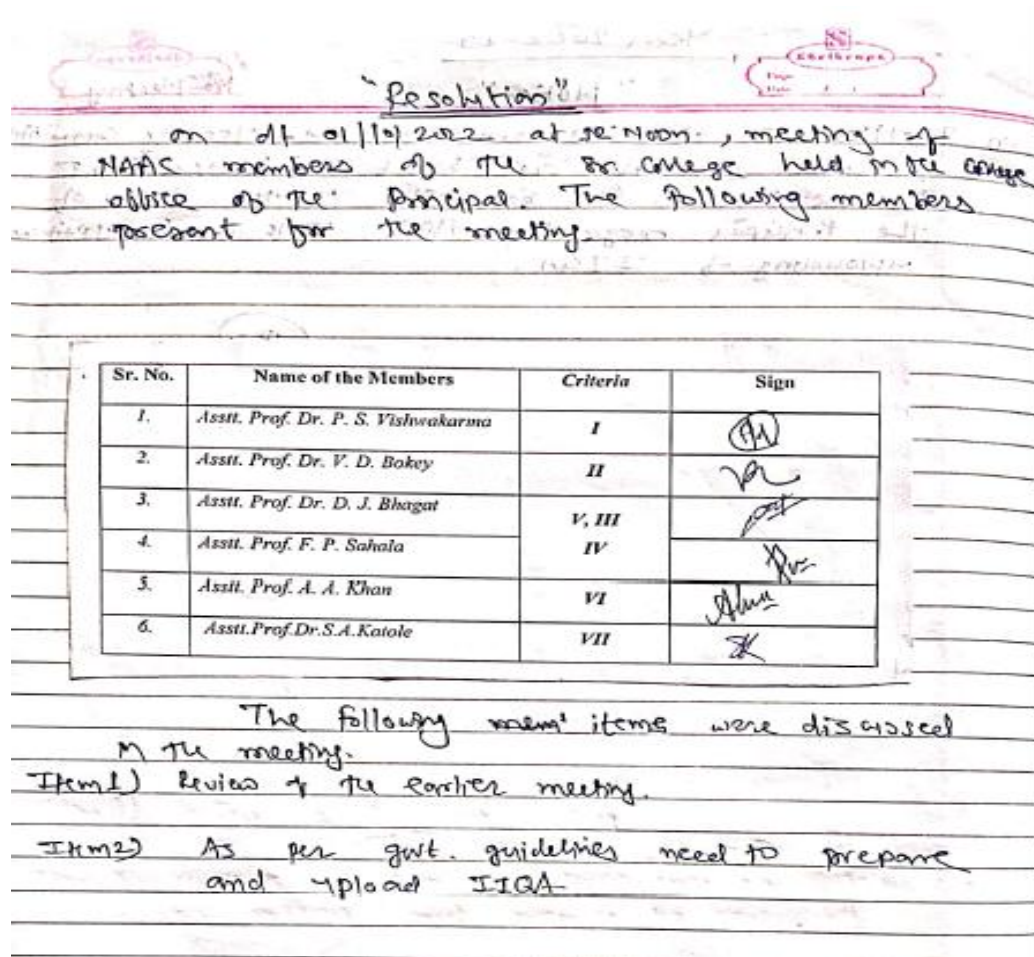 "Resolution"
on dt 01/10/2022 at Noon, meeting of
NAAC members of the college held in the college
office of the Principal. The following members
present for the meeting.
Sr. No. Name of the Members Criteria Sign
1. Asstt. Prof. Dr. P. S. Vishwakarma I
2. Asstt. Prof. Dr. V. D. Bokey II
3. Asstt. Prof. Dr. D. J. Bhagat V, III
4. Asstt. Prof. F. P. Sahala IV
5. Asstt. Prof. A. A. Khan VI
6. Asstt.Prof.Dr.S.A.Katole VII
The following items were discussed
in the meeting.
Item1) Review of the earlier meeting.
Item2) As per govt. guidelines need to prepare
and upload IIQA